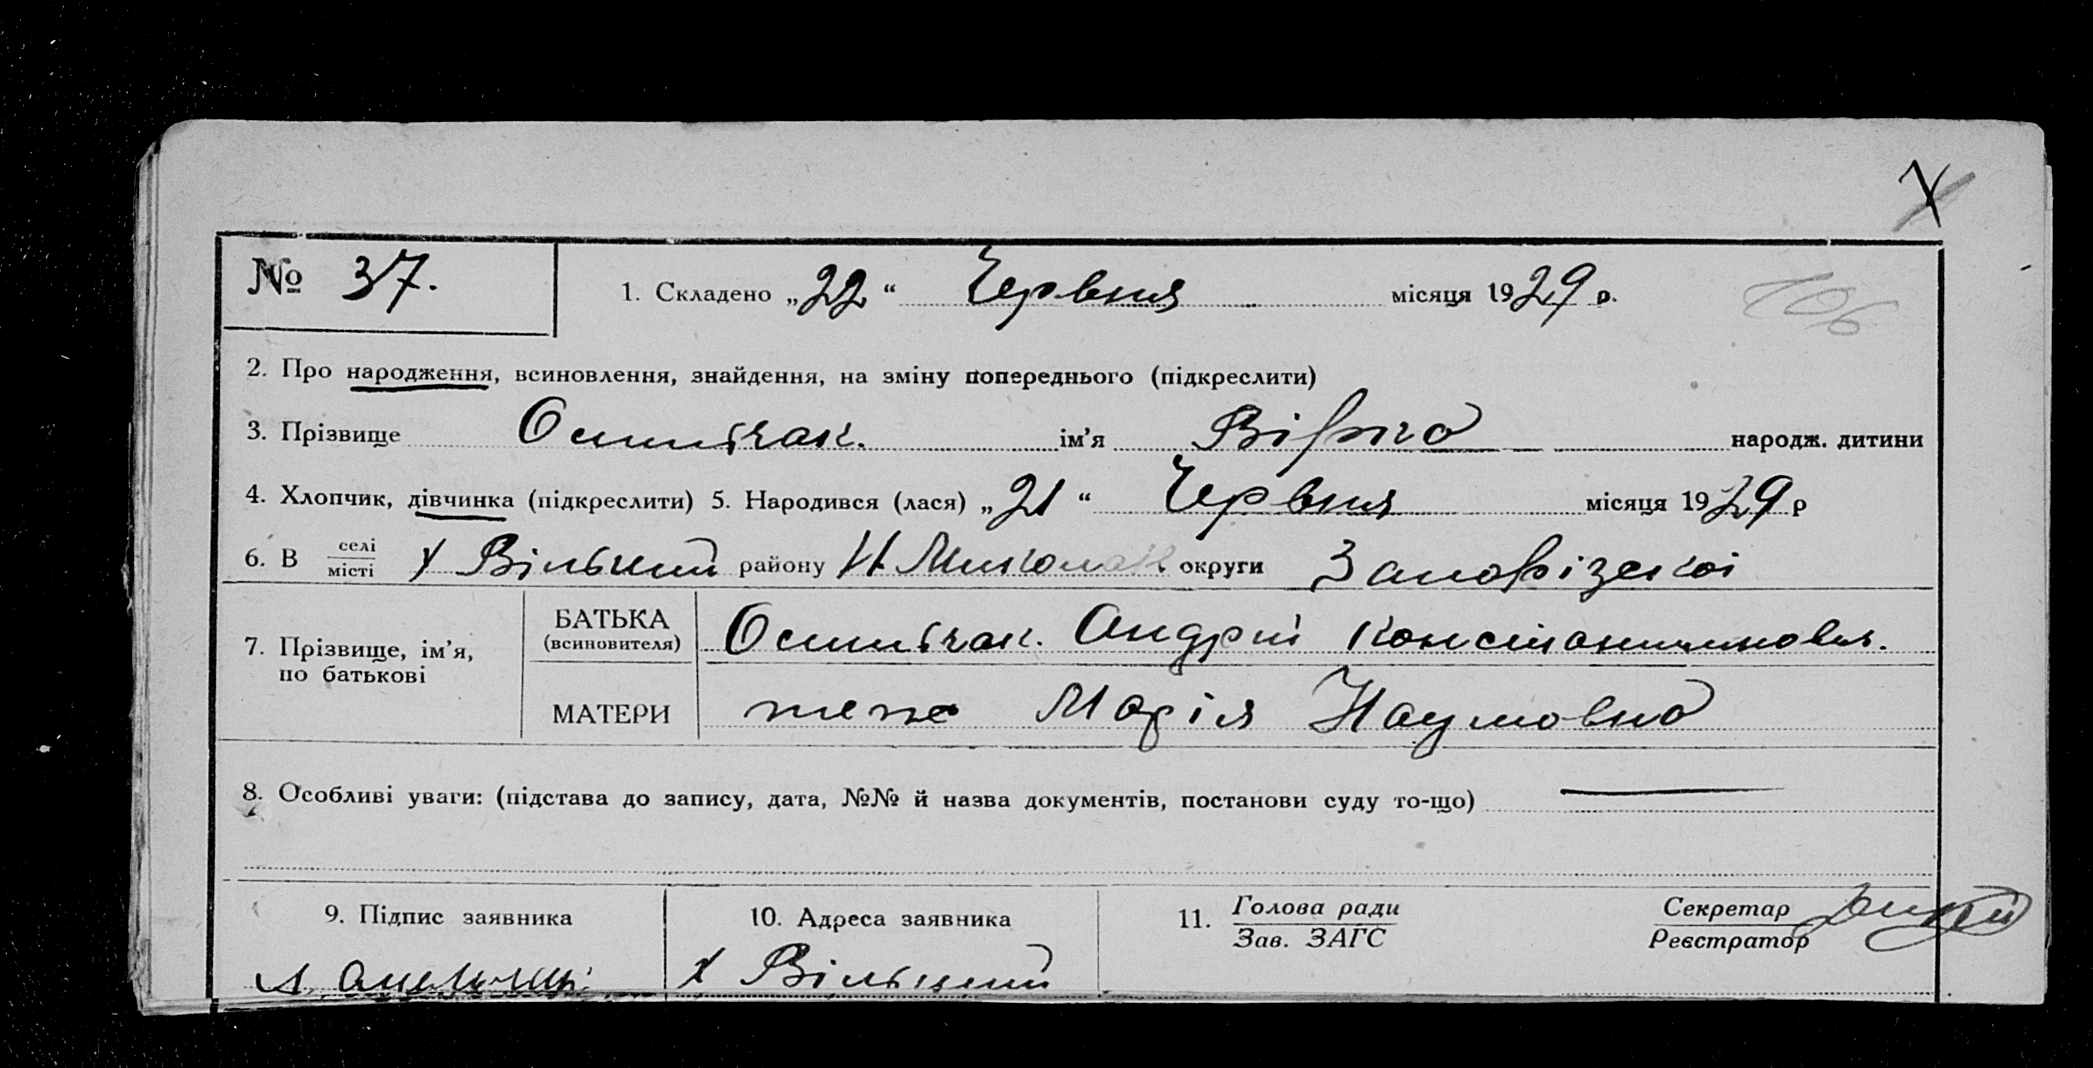 № 37.
1. Складено „22“ Червня місяця 1929 р.
106
2. Про народження, всиновлення, знайдення, на зміну попереднього (підкреслити)
3. Прізвище ім’я народж. дитини
4. Хлопчик, дівчинка (підкреслити) 5. Народився (лася) „21“ Червня місяця 1929 р
6. В селі місті х Вільний району Н Миколаїв округи Запорізької
7. Прізвище, ім’я, по батькові
БАТЬКА (всиновителя) Андрій Константинович.
МАТЕРИ теж Марія Наумовна
8. Особливі уваги: (підстава до запису, дата, №№ й назва документів, постанови суду то-що)
9. Підпис заявника
10. Адреса заявника
11. Голова ради
Зав. ЗАГС
Секретар
Реєстратор
х Вільний